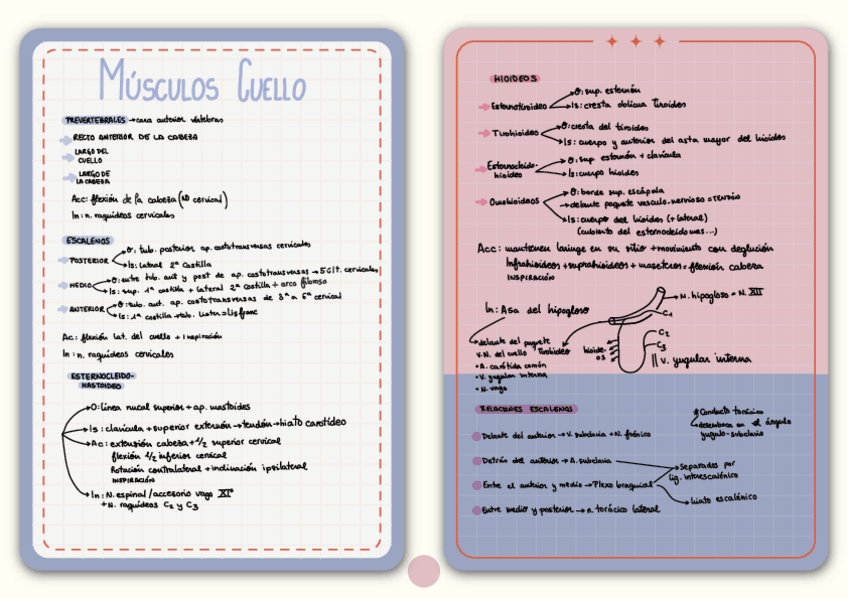 MÚSCULOS CUELLO
PREVERTEBRALES → cara anterior vértebras
RECTO ANTERIOR DE LA CABEZA
LARGO DEL
CUELLO
LARGO DE
LA CABEZA
Acc: flexión de la cabeza (NO cervical)
In: n. raquídeos cervicales
ESCALENOS
POSTERIOR
O: tub. posterior ap. costotransversas cervicales
Is: lateral 2ª Costilla
MEDIO
O: entre tub. ant y post de ap. costotransversas → 5 últ. cervicales
Is: sup. 1ª costilla + lateral 2ª Costilla + arco fibroso
ANTERIOR
O: tub. ant. ap. costotransversas de 3ª a 6ª cervical
Is: 1ª costilla → tub.
Ac: flexión lat. del cuello + inspiración
In: n. raquídeos cervicales
ESTERNOCLEIDO-
MASTOIDEO
O: línea nucal superior + ap. mastoides
Is: clavícula + superior externón → tendón → hiato carotídeo
Ac: extensión cabeza + 1/2 superior cervical
flexión 1/2 inferior cervical
Rotación contralateral + inclinación ipsilateral
INSPIRACIÓN
In: N. espinal/accesorio vago XIº
+ N. raquídeos C2 y C3
HIOIDEOS
Esternotiroideo
O: sup. esternón
Is: cresta oblicua Tiroides
Tirohioideo
O: cresta del tiroides
Is: cuerpo y anterior del asta mayor del hioides
Esternocleido-
hioideo
O: sup esternón + clavícula
Is: cuerpo hioides
Omohioideos
O: borde sup. escápula
→ delante paquete vasculo.nervioso = TENDÓN
Is: cuerpo del hioides (+ lateral)
(cubierto del esternocleidomas...)
Acc: mantienen laringe en su sitio + movimiento con deglución
Infrahioideos + suprahioideos + maseteros = flexión cabeza
INSPIRACIÓN
In: Asa del hipogloso
→ N. hipogloso = N. XII
C1
C2
C3
→ delante del paquete
V.N. del cuello
• A. carótida común
• V. yugular interna
• N. vago
Tirohioideo
hioide-
os
|| V. yugular interna
RELACIONES ESCALENOS
* Conducto torácico
→ desemboca en el ángulo
yugulo-subclavio
Delante del anterior → V. subclavia + N. frénico
Detrás del anterior → A. subclavia
→ Separados por
lig. interescalénico
Entre el anterior y medio → Plexo braquial
→ hiato escalénico
Entre medio y posterior → n. torácico lateral